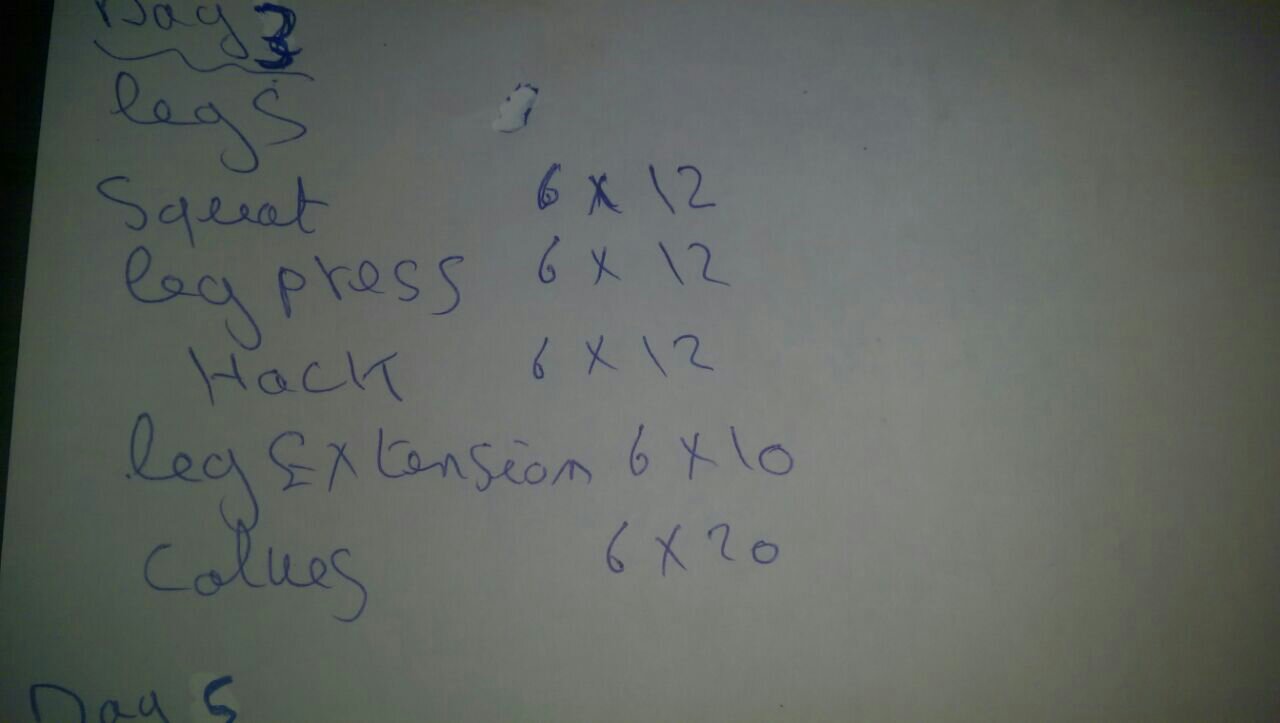 Day 3
legs
Squat 6 x 12
leg press 6 x 12
Hack 6 x 12
leg Extension 6 x 10
Calves 6 x 20
Day 5